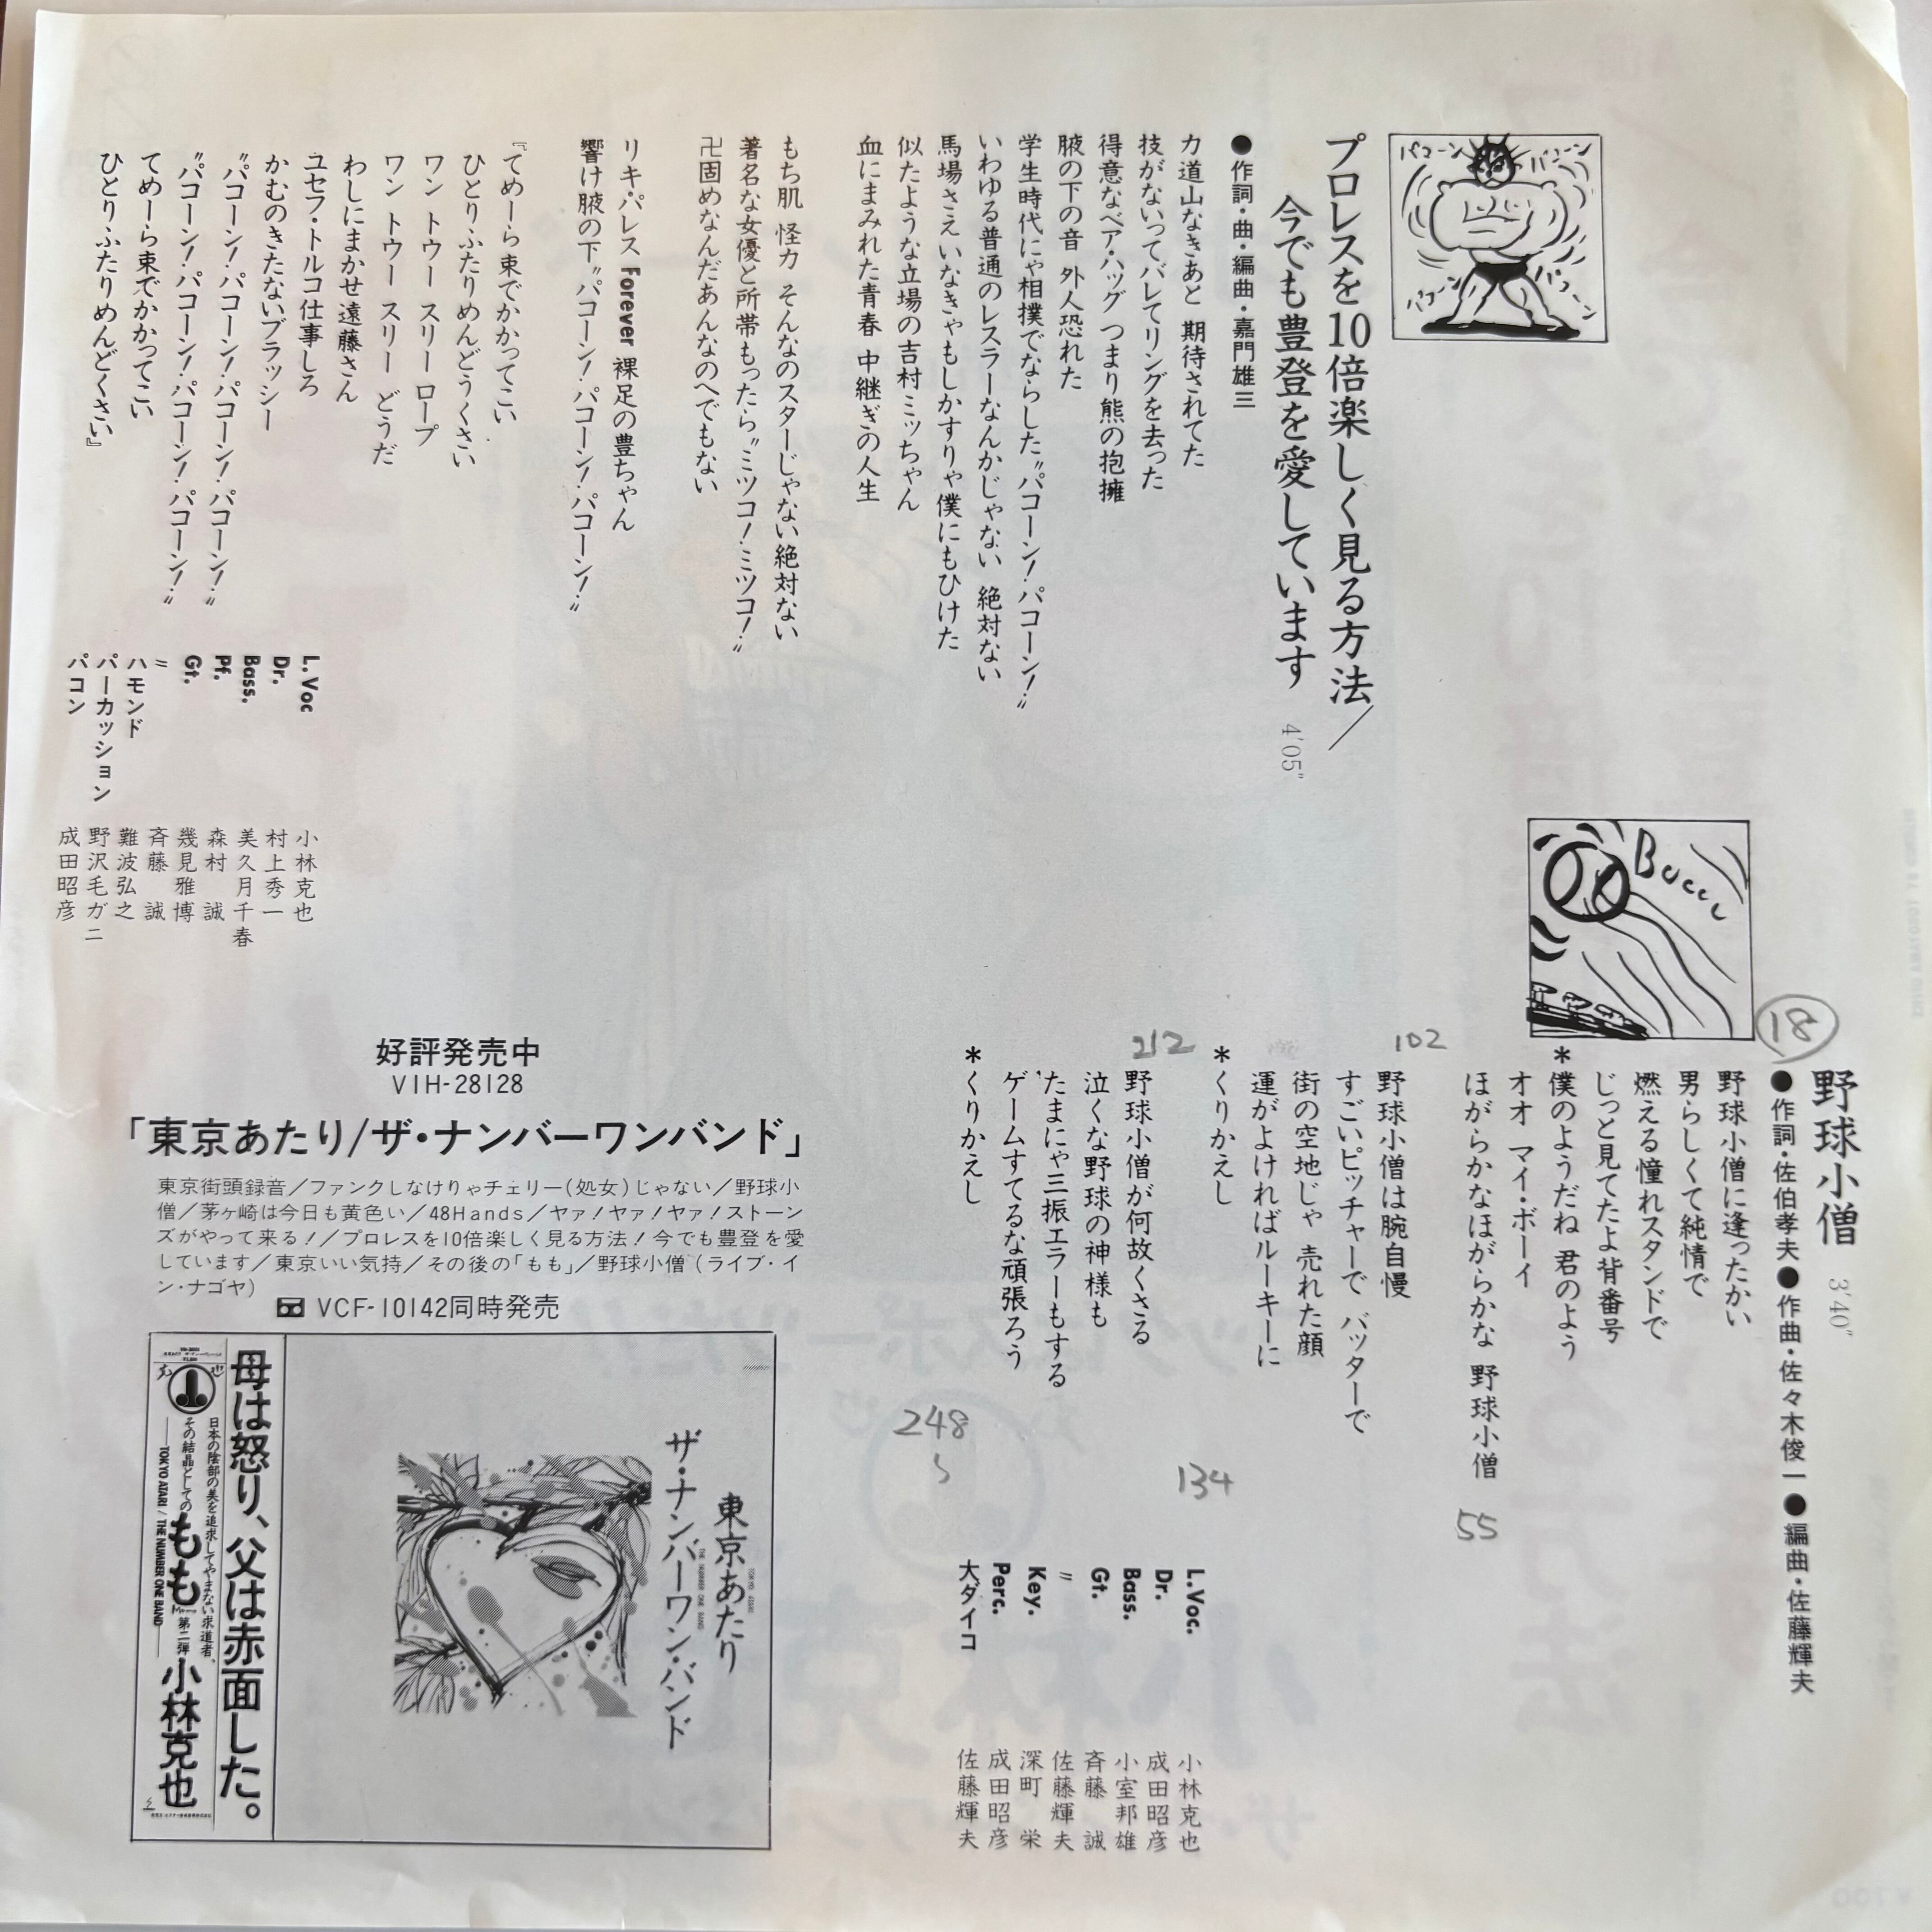 プロレスを10倍楽しく見る方法／
今でも豊登を愛しています 4'05"
●作詞・曲・編曲・嘉門雄三
力道山なきあと 期待されてた
技がないってバレてリングを去った
得意なベア・ハッグ つまり熊の抱擁
腋の下の音 外人恐れた
学生時代にゃ相撲でならした〝パコーン！パコーン！〟
いわゆる普通のレスラーなんかじゃない 絶対ない
馬場さえ いなきゃもしかすりゃ僕にもひけた
似たような立場の吉村 ミッちゃん
血にまみれた青春 中継ぎの人生
もち肌 怪力 そんなのスターじゃない絶対ない
著名な女優と所帯もったら〝ミツコ！ミツコ！〟
卍固めなんだあんなのへでもない
リキ・パレス Forever 裸足の豊ちゃん
響け腋の下〝パコーン！パコーン！パコーン！〟
『てめーら束でかかってこい
ひとりふたりめんどうくさい
ワン トウー スリー ロープ
ワン トウー スリー どうだ
わしにまかせ遠藤さん
ユセフ・トルコ仕事しろ
かむのきたないブラッシー
〝パコーン！パコーン！パコーン！パコーン！〟
〝パコーン！パコーン！パコーン！パコーン！〟
てめーら束でかかってこい
ひとりふたりめんどくさい』
L.Voc 小林克也
Dr. 村上秀一
Bass. 美久月千春
Pf. 森村 誠
Gt. 幾見雅博
〃 斉藤 誠
ハモンド 難波弘之
パーカッション 野沢毛ガニ
パコン 成田昭彦
パコーン
パコーン
パコーン
パコーン
18
野球小僧 3'40"
●作詞・佐伯孝夫●作曲・佐々木俊一●編曲・佐藤輝夫
野球小僧に逢ったかい
男らしくて純情で
燃える憧れスタンドで
じっと見てたよ背番号
＊僕のようだね 君のよう
オオ マイ・ボーイ
ほがらかなほがらかな 野球小僧
55
102
野球小僧は腕自慢
すごいピッチャーで バッターで
街の空地じゃ 売れた顔
運がよければルーキーに
＊くりかえし
134
212
野球小僧が何故くさる
泣くな野球の神様も
たまにゃ三振エラーもする
ゲームすてるな頑張ろう
＊くりかえし
248
〜
L.Voc. 小林克也
Dr. 成田昭彦
Bass. 小室邦雄
Gt. 斉藤 誠
〃 佐藤輝夫
Key. 深町 栄
Perc. 成田昭彦
大ダイコ 佐藤輝夫
好評発売中
VIH-28128
「東京あたり/ザ・ナンバーワンバンド」
東京街頭録音／ファンクしなけりゃチェリー（処女）じゃない／野球小
僧／茅ヶ崎は今日も黄色い／48Hands／ヤァ！ヤァ！ヤァ！ストーン
ズがやって来る！／プロレスを10倍楽しく見る方法！今でも豊登を愛
しています／東京いい気持／その後の「もも」／野球小僧（ライブ・イ
ン・ナゴヤ）
VCF-10142同時発売
東京あたり
TOKYO ATARI
ザ・ナンバーワン・バンド
THE NUMBER ONE BAND
母は怒り、父は赤面した。
日本の陰部の美を追求してやまない求道者、
その結晶としてのもも 第二弾 小林克也
TOKYO ATARI / THE NUMBER ONE BAND